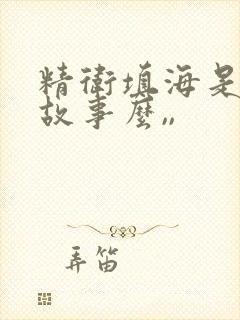 精衛填海是
故事麼〃
弄笛